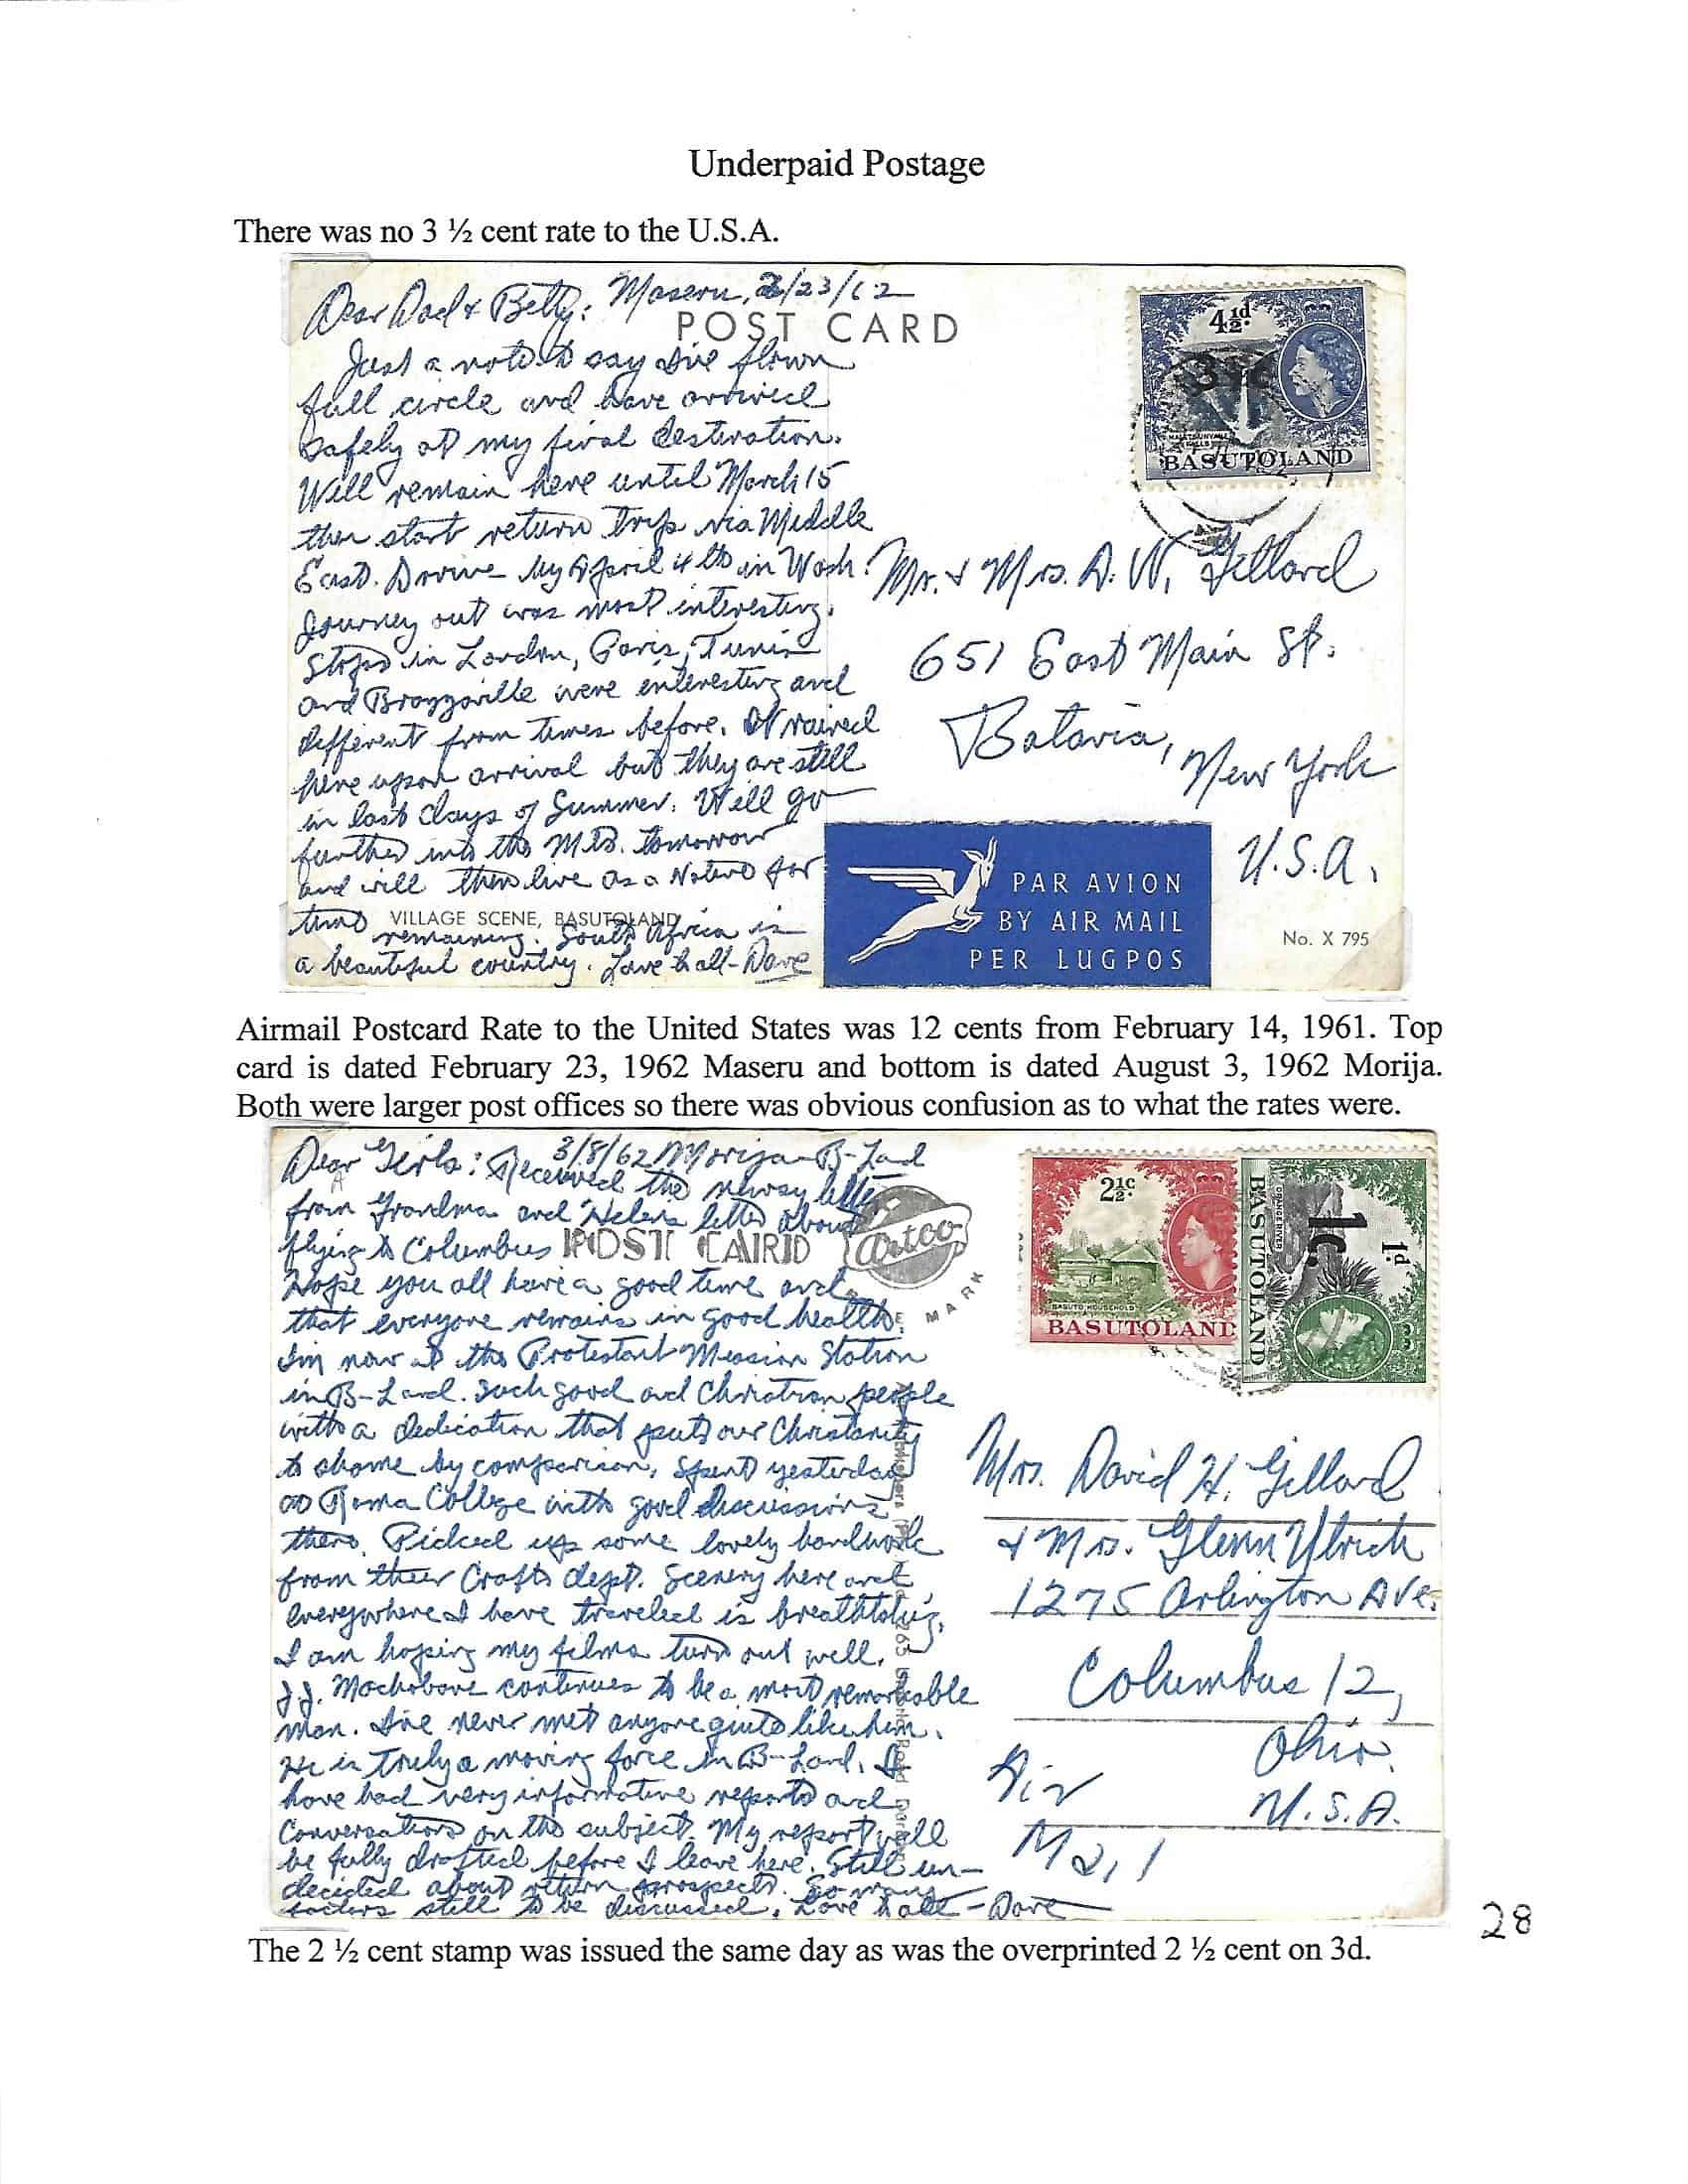 Underpaid Postage
There was no 3 ½ cent rate to the U.S.A.
Dear Dad & Betty: Maseru, 2/23/62
POST CARD
Just a note to say I've flown
full circle and have arrived
safely at my final destination.
Will remain here until March 15
then start return trip via Middle
East. Arrive by April 4th in Wash.
Journey out was most interesting.
Stops in London, Paris, Tunis
and Brazzaville were interesting and
different from times before. It rained
here upon arrival but they are still
in last days of Summer. Will go
further into the Mts. tomorrow
and will then live as a Native for
time
VILLAGE SCENE, BASUTOLAND
remaining. South Africa is
a beautiful country. Love to all - Dave
4½d.
3½c
MALETSUNYANE
FALLS
BASUTOLAND
Mr. & Mrs. D. W. Gillard
651 East Main St.
Batavia,
New York
U.S.A.
PAR AVION
BY AIR MAIL
PER LUGPOS
No. X 795
Airmail Postcard Rate to the United States was 12 cents from February 14, 1961. Top
card is dated February 23, 1962 Maseru and bottom is dated August 3, 1962 Morija.
Both were larger post offices so there was obvious confusion as to what the rates were.
3/8/62 Morija B-Land
Dear Girls: Received the newsy letter
from Grandma and Helen's letter about
flying to Columbus
POST CARD
Artco
MARK
Hope you all have a good time and
that everyone remains in good health.
I'm now at the Protestant Mission Station
in B-Land. Such good and Christian people
with a dedication that puts our Christianity
to shame by comparison. Spent yesterday
at Roma College with good discussions
there. Picked up some lovely handwork
from their Crafts dept. Scenery here and
everywhere I have traveled is breathtaking.
I am hoping my films turn out well.
J.J. Machobane continues to be a most remarkable
man. I've never met anyone quite like him.
He is truly a moving force in B-Land. I
have had very informative reports and
conversations on the subject. My report will
be fully drafted before I leave here. Still un-
decided about return prospects. So many
factors still to be discussed. Love to all - Dave
2½c.
BASUTO HOUSEHOLD
BASUTOLAND
1d.
1c.
ORANGE RIVER
BASUTOLAND
Mrs. David H. Gillard
& Mrs. Glenn Ulrich
1275 Arlington Ave.
Columbus 12,
Ohio.
U.S.A.
Air
Mail
28
The 2 ½ cent stamp was issued the same day as was the overprinted 2 ½ cent on 3d.